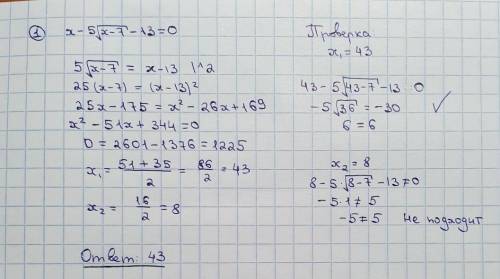 ① x - 5√(x-7) - 13 = 0
5√(x-7) = x-13 |^2
25(x-7) = (x-13)²
25x - 175 = x² - 26x + 169
x² - 51x + 344 = 0
D = 2601 - 1376 = 1225
x₁ = (51 + 35)/2 = 86/2 = 43
x₂ = 16/2 = 8
Ответ: 43
Проверка
x₁ = 43
43 - 5√(43-7) - 13 0
-5√36 = -30 ✓
6 = 6
x₂ = 8
8 - 5·√(8-7) - 13 ≠ 0
-5·1 ≠ 5
-5 ≠ 5 Не подходит